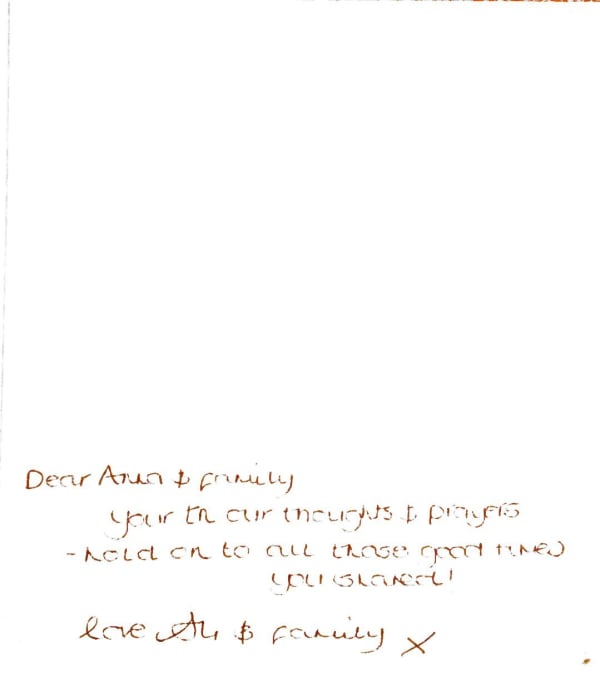 Dear & family
your in our thoughts & prayers
- hold on to all those good times
you shared!
love & family x